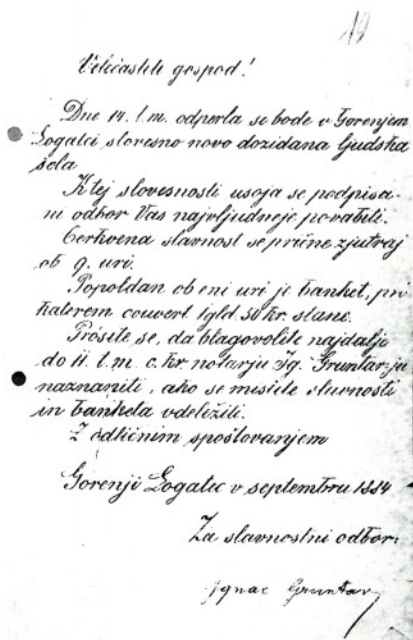 18
Velečastiti gospod!
Dne 14. t.m. odperla se bode v Gorenjem
Logatci slovesno novo dozidana ljudska
šola
K tej slovesnosti usoja se podpisa-
ni odbor Vas najvljudneje povabiti.
Cerkvena slavnost se prične zjutraj
ob 9. uri.
Popoldan ob eni uri je banket, pri
katerem couvert 1 gld. 50 kr. stane.
Prosite se, da blagovolite najdalje
do 11. t.m. c. kr. notarju Ig. Gruntar-ju
naznaniti, ako se mislite slavnosti
in banketa vdeležiti.
Z odličnim spoštovanjem
Gorenji Logatec v septembru 1884
Za slavnostni odbor:
Ignac Gruntar